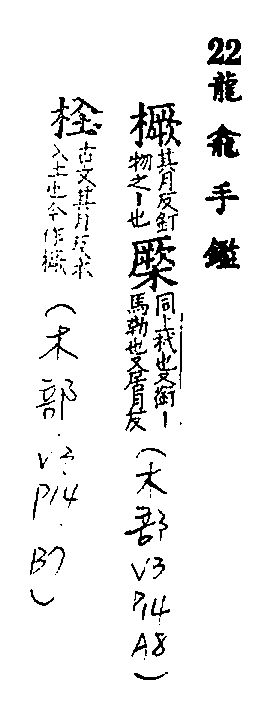 22龍龕手鑑
橛
其月反釘
物之丨也
橜
同上杙也又銜丨
馬勒也又居月反
(木部 V3 P14 A8)
古文其月反
入土也今作橛
(木部 V3 P14 B7)